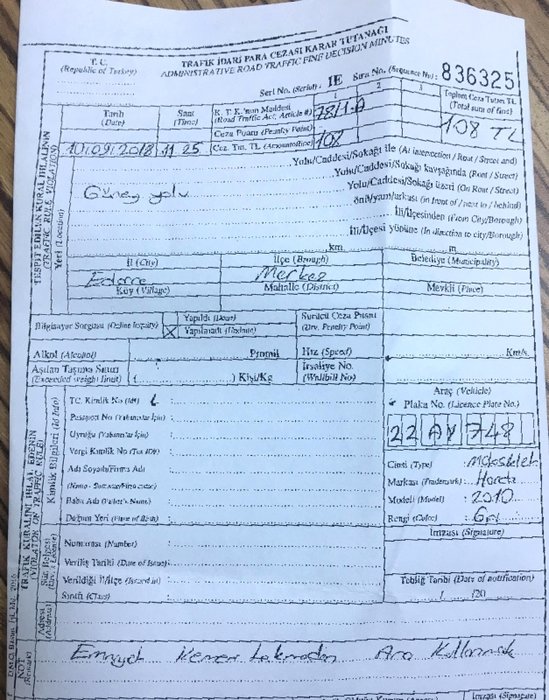 T. C.
(Republic of Turkey)
TRAFİK İDARİ PARA CEZASI KARAR TUTANAĞI
ADMINISTRATIVE ROAD TRAFFIC FINE DECISION MINUTES
Seri No. (Serial): IE Sıra No. (Sequence No): 836325
Tarih
(Date)
Saat
(Time)
K. T. K.'nun Maddesi
(Road Traffic Act, Article #) 78/1-A
1 2 3
Toplam Ceza Tutarı TL
(Total sum of fine)
108 TL
Ceza Puanı (Penalty Point)
10/09/2018 11 25 Cez. Tut. TL (Amount of fine) 108
TESPİT EDİLEN KURAL İHLALİNİN
(TRAFFIC RULE VIOLATION)
Yeri (Location)
Yolu/Caddesi/Sokağı ile (At intersection / Rout / Street and)
Yolu/Caddesi/Sokağı kavşağında (Rout / Street)
Güney yolu
Yolu/Caddesi/Sokağı üzeri (On Rout / Street)
önü/yanı/arkası (in front of / next to / behind)
İli/İlçesinden (From City/Borough)
İli/İlçesi yönüne (In direction to city/Borough)
km m
İl (City) İlçe (Brough) Belediye (Municipality)
Edirne Merkez
Köy (Village) Mahalle (District) Mevkii (Place)
Bilgisayar Sorgusu (Online Inquiry)
Yapıldı
X Yapılamadı
Sürücü Ceza Puanı
(Drv. Penalty Point)
Alkol (Alcohol) Promil Hız (Speed) Km/s.
Aşılan Taşıma Sınırı
(Exceeded weight limit) ( ) Kişi/Kg
İrsaliye No.
(Waybill No)
TRAFİK KURALINI İHLAL EDENİN
(VIOLATOR OF TRAFFIC RULE)
Kimlik Bilgileri (Id Info)
TC. Kimlik No (Id#) :
Pasaport No (Yabancılar İçin) :
Uyruğu (Yabancılar İçin) :
Vergi Kimlik No (Tax ID#) :
Adı Soyadı/Firma Adı :
Baba Adı (Father's Name) :
Doğum Yeri (Place of Birth) :
Araç (Vehicle)
Plaka No. (Licence Plate No.)
22 AY 748
Cinsi (Type) : Motosiklet
Markası (Trademark) : Honda
Modeli (Model) : 2010
Rengi (Color) : Gri
İmzası (Signature)
Numarası (Number) :
Veriliş Tarihi (Date of Issue) :
Verildiği İl/İlçe (Issued in) :
Sınıfı (Class) :
Tebliğ Tarihi (Date of notification)
/ /20
Adresi
(Address)
NOT
(Remark)
Emniyet Kemeri takmadan Araç Kullanmak
İmzası (Signature)